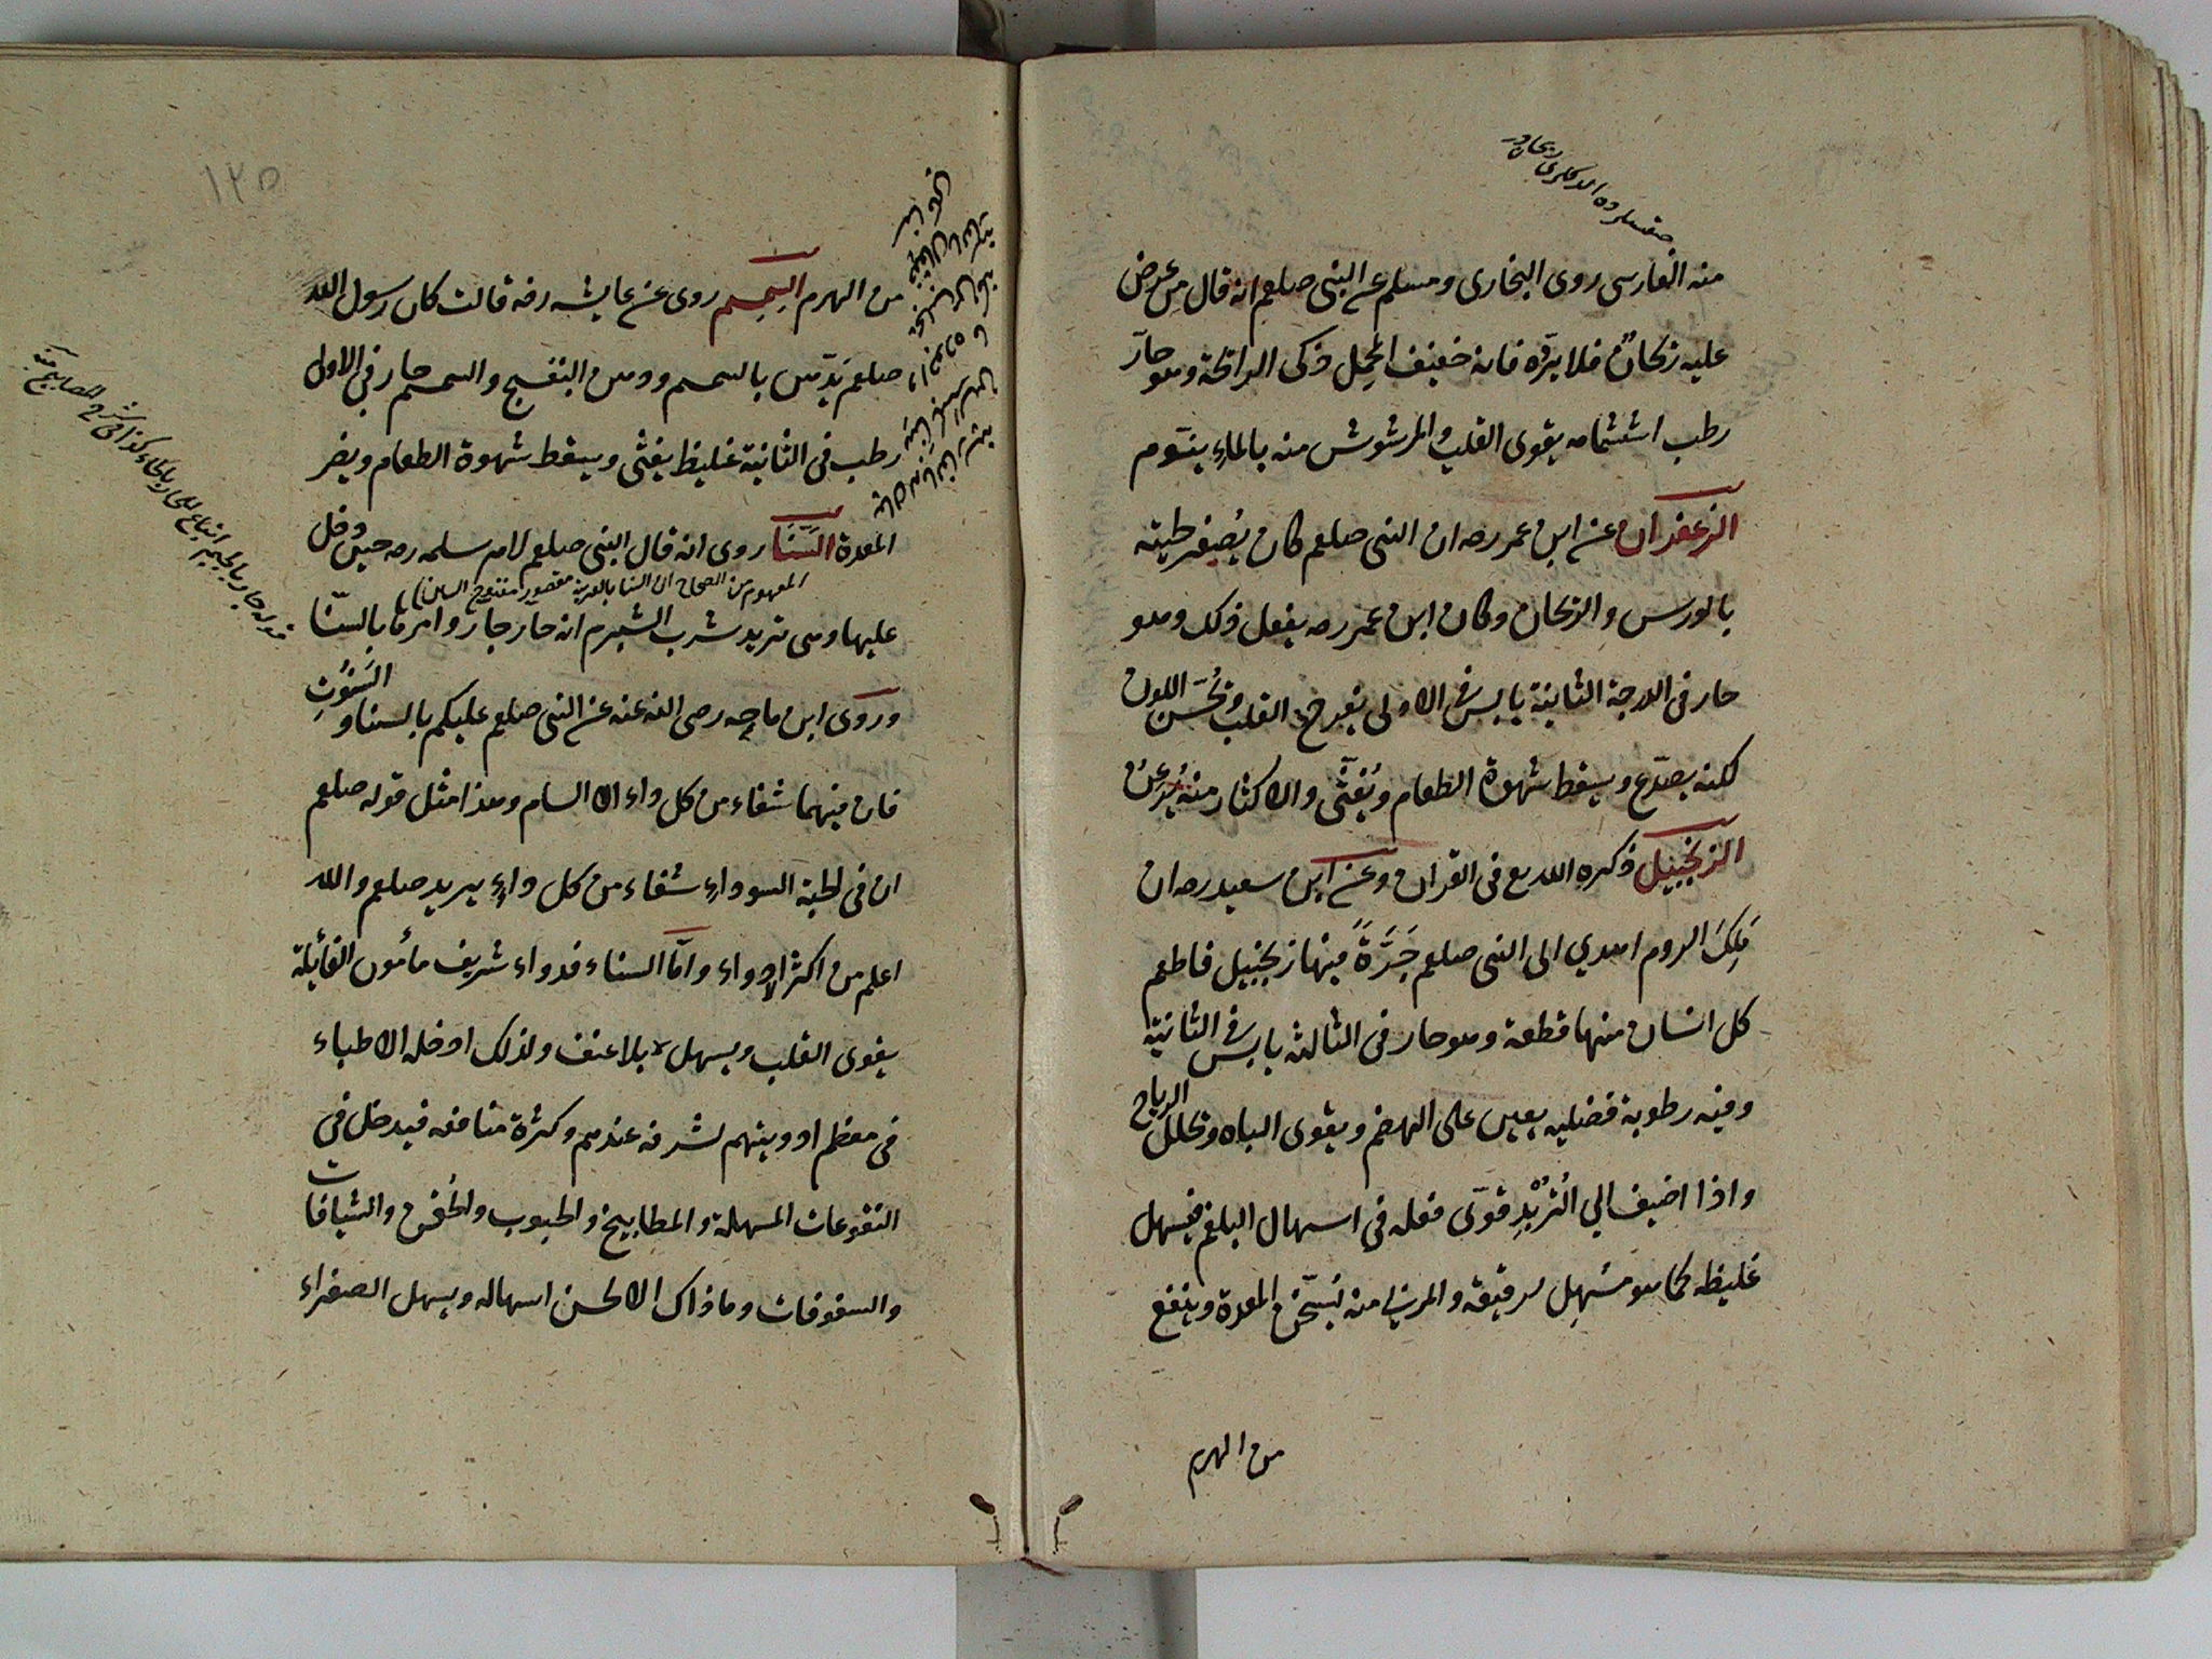 منه الفارسى روى البخارى ومسلم عن النبى صلعم انه قال من عرض
عليه ريحان فلا يرده فانه خفيف المحمل ذكى الرائحة وهو حار
رطب اشتمامه يقوى القلب والمرشوش منه بالماء ينوم
الزعفران عن ابن عمر رضه ان النبى صلعم كان يُصفر لحيته
بالورس والزعفران وكان ابن عمر رضه يفعل ذلك وهو
حار فى الدرجة الثانية يابس فى الاولى يفرح القلب ويُحسّن اللون
لكنه يصدّع ويسقط شهوة الطعام ويُغثّى والاكثار منه يُرعن
الزنجبيل ذكره الله تع فى القران وعن ابى سعيد رضه ان
مَلِك الروم اهدي الى النبى صلعم جَرَّةً فيها زنجبيل فاطعم
كل انسان منها قطعة وهو حار فى الثالثه يابس فى الثانية
وفيه رطوبة فضليه يعين على الهضم ويقوى الباه ويحلل الرياح
واذا اضيف الي التُربْدِ قوّى فعله فى اسهال البلغم فيسهل
غليظه كما هو مسُهِل لرقيقه والمربى منه يُسخّن المعدة وينفع
من الهرم
١٢٥
من الهرم السِمسِم روى عن عايشه رضه قالت كان رسول الله
صلعم يدّهن بالسمسم ودهن البنفسج والسمسم حار فى الاول
رطب فى الثانية غليظ يغثى ويسقط شهوة الطعام ويضر
المعدة السَّنَا روى انه قال النبى صلعم لام سلمه رضه حين دخل
المفهوم من الصحاح ان السنا بالعربية مقصور مفتوح السين
عليها وهى تريد شرب الشبرم انه حار جار وامرها بالسّنا
وروى ابن ماجه رضى الله عنه عن النبى صلعم عليكم بالسنا و السَنُوتِ
فان فيهما شفاء من كل داء الا السام وهذا مثل قوله صلعم
ان فى الحبة السوداء شفاء من كل داءٍ يريد صلعم والله
اعلم من اكثر الادواء وامّا السناء فدواء شريف مأمون الغائلة
يقوى القلب ويسهل بلا عنف ولذلك ادخله الاطباء
فى معظم ادويتهم لشرفه عندهم وكثرة منافعه فيدخل فى
النقوعات المسهلة والمطابيخ والحبوب والحُقن والشيافات
والسفوفات وما ذاك الا لحسن اسهاله ويسهل الصفراء
قوله جار بالجيم اتباع للحار بالحاء كذا فى شرح المصابيح منه